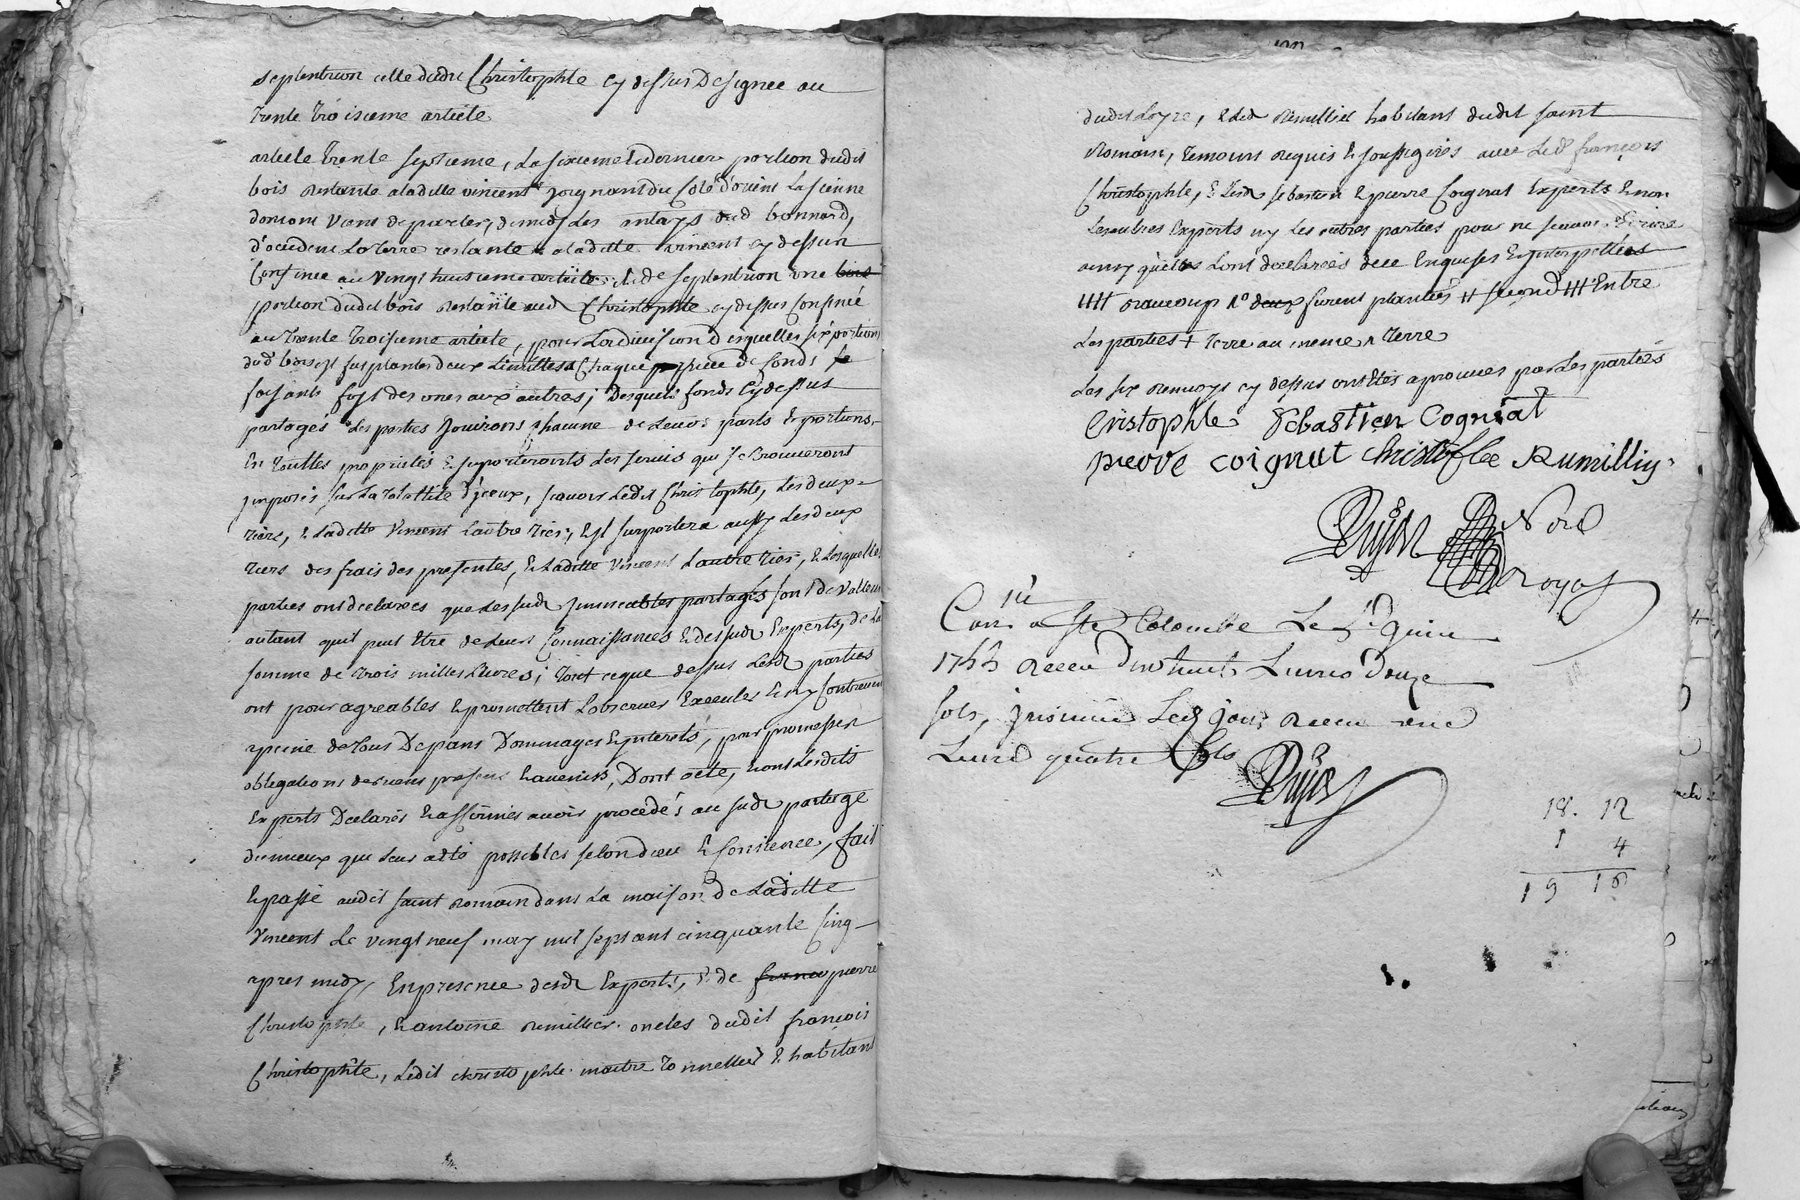 septentrion celle dudit Christophle cy dessus Designee au
trente troisieme article
article trente septieme, La sixieme & derniere portion dudit
bois restante a laditte vincent joignant du Coté d'orient La sienne
dont on vient de parler, de midy Les dud bonnard,
d'occident La terre restante a laditte vincent cy dessus
Confinée au vingt huitieme article, & de septentrion une bois
portion dudit bois restante aud Christophle cy dessus Confinée
au trente troisieme article, pour La division desquelles six portions
dud bois ont plantés deux Limittes a Chaque de fonds
faisants foy des unes aux autres; Desquels fonds Cy dessus
partagés Les parties jouiront chacune de Leurs parts & portions,
En touttes propriétés & suporteronts Les servis qui se trouveront
imposés sur La totallité d'jceux, scavoir Ledit Christophle, Les deux
tiers, & Laditte Vincent L'autre tiers; Et il suportera aussy Les deux
tiers des frais des presentes, & Laditte Vincent L'autre tier, & Lesquelles
parties ont declarées que Les sud jmmeubles partagés sont de valleur
autant qu'il peut être de Leurs Connaissances & desd Experts, de La
somme de trois milles Livres; tout ce que dessus Lesd parties
ont pour agreables & promettent L'observer Executer & n'y Contrevenir
a peine de tous Depans Dommages & jnterets, par promesses
obligations de biens presens & avenirs, Dont acte, nous Lesdits
Experts Declarés & affirmés avoir procédés au sud partage
du mieux qu'il leur a été possibles selon dieu & Consience, fait
& passé audit saint Romain dans La maison de Laditte
Vincent Le vingt neuf may mil sept cent cinquante cinq
apres midy, En presence desd Experts, & de pierre
Christophle, & antoine Remillier oncles dudit françois
Christophle, Ledit christophle maitre tonnellier & habitant
dudit Loyre, & Led Remillier habitant dudit saint
Romain, temoins requis & soussignés avec Led françois
Christophle, & Lesd sebastien & pierre Coignat Experts & non
Les autres Experts ny Les autres parties pour ne scavoir Ecrire
ainsy qu'elles L'ont declarées de ce Enquises & jnterpellées
beaucoup furent plantées second Entre
Les parties + terre au meme terre
Les six renvoys cy dessus ont étés aprouvés par Les parties
Cristophle Sebastien Cogniat
pierre coignat christofle Rumilliy
Dujast Noel
Royal
Con.lé a Ste Colombe Le Juin
1755 Receu dix huit Livres Douze
sols, jnsinué Led jour Receu une
Livre quatre Sols
Dujast
18. 12
1 4
19 16